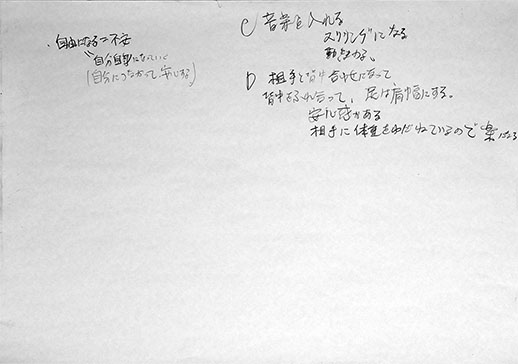 ・自由になる=不安
自分自身になっていく
(自分につながって安心する)
C 音楽を入れる
スリリングになる
動き
D 相手と背中合せになって
背中をふれ合って、足は肩幅にする。
安心感がある
相手に体重をゆだねているので楽になる